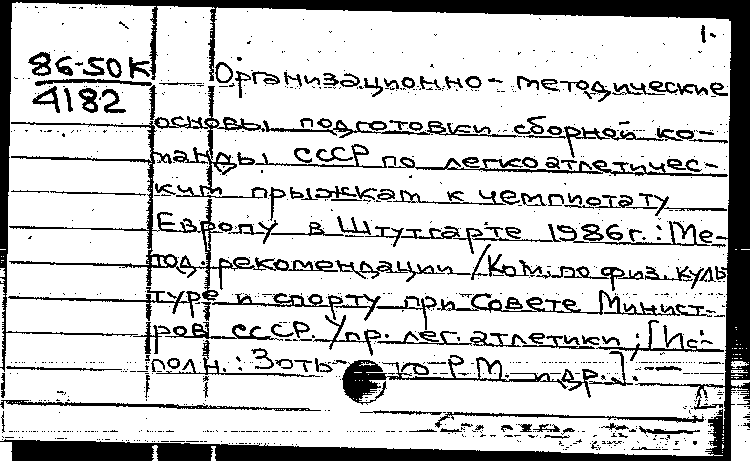 1.
86-50К Организационно-методические
4182
основы подготовки сборной ко-
манды СССР по легкоатлетичес-
ким прыжкам к чемпиотату
Европу в Штутгарте 1986г.: Ме-
тод. рекомендации /Ком. по физ. куль
туре и спорту при Совете Минист-
ров СССР. Упр. лег. атлетики; [Ис-
полн.: Зоть ко Р.М. и др.].